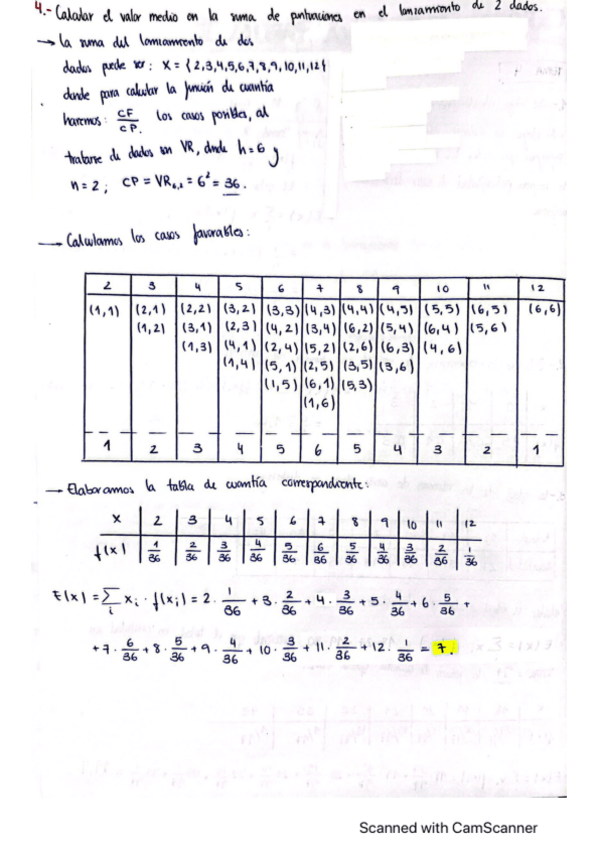 4.- Calcular el valor medio en la suma de puntuaciones en el lanzamiento de 2 dados.
→ La suma del lanzamiento de dos
dados puede ser: X = {2,3,4,5,6,7,8,9,10,11,12}
donde para calcular la función de cuantía
haremos: CF/CP. Los casos posibles, al
tratarse de dados son VR, donde h=6 y
n=2; CP = VR6,2 = 6² = 36.
→ Calculamos los casos favorables:
2 3 4 5 6 7 8 9 10 11 12
(1,1) (2,1) (2,2) (3,2) (3,3) (4,3) (4,4) (4,5) (5,5) (6,5) (6,6)
(1,2) (3,1) (2,3) (4,2) (3,4) (6,2) (5,4) (6,4) (5,6)
(1,3) (4,1) (2,4) (5,2) (2,6) (6,3) (4,6)
(1,4) (5,1) (2,5) (3,5) (3,6)
(1,5) (6,1) (5,3)
(1,6)
1 2 3 4 5 6 5 4 3 2 1
→ Elaboramos la tabla de cuantía correspondiente:
X 2 3 4 5 6 7 8 9 10 11 12
f(x) 1/36 2/36 3/36 4/36 5/36 6/36 5/36 4/36 3/36 2/36 1/36
E(x) = ∑i xi · f(xi) = 2 · 1/36 + 3 · 2/36 + 4 · 3/36 + 5 · 4/36 + 6 · 5/36 +
+ 7 · 6/36 + 8 · 5/36 + 9 · 4/36 + 10 · 3/36 + 11 · 2/36 + 12 · 1/36 = 7.
Scanned with CamScanner